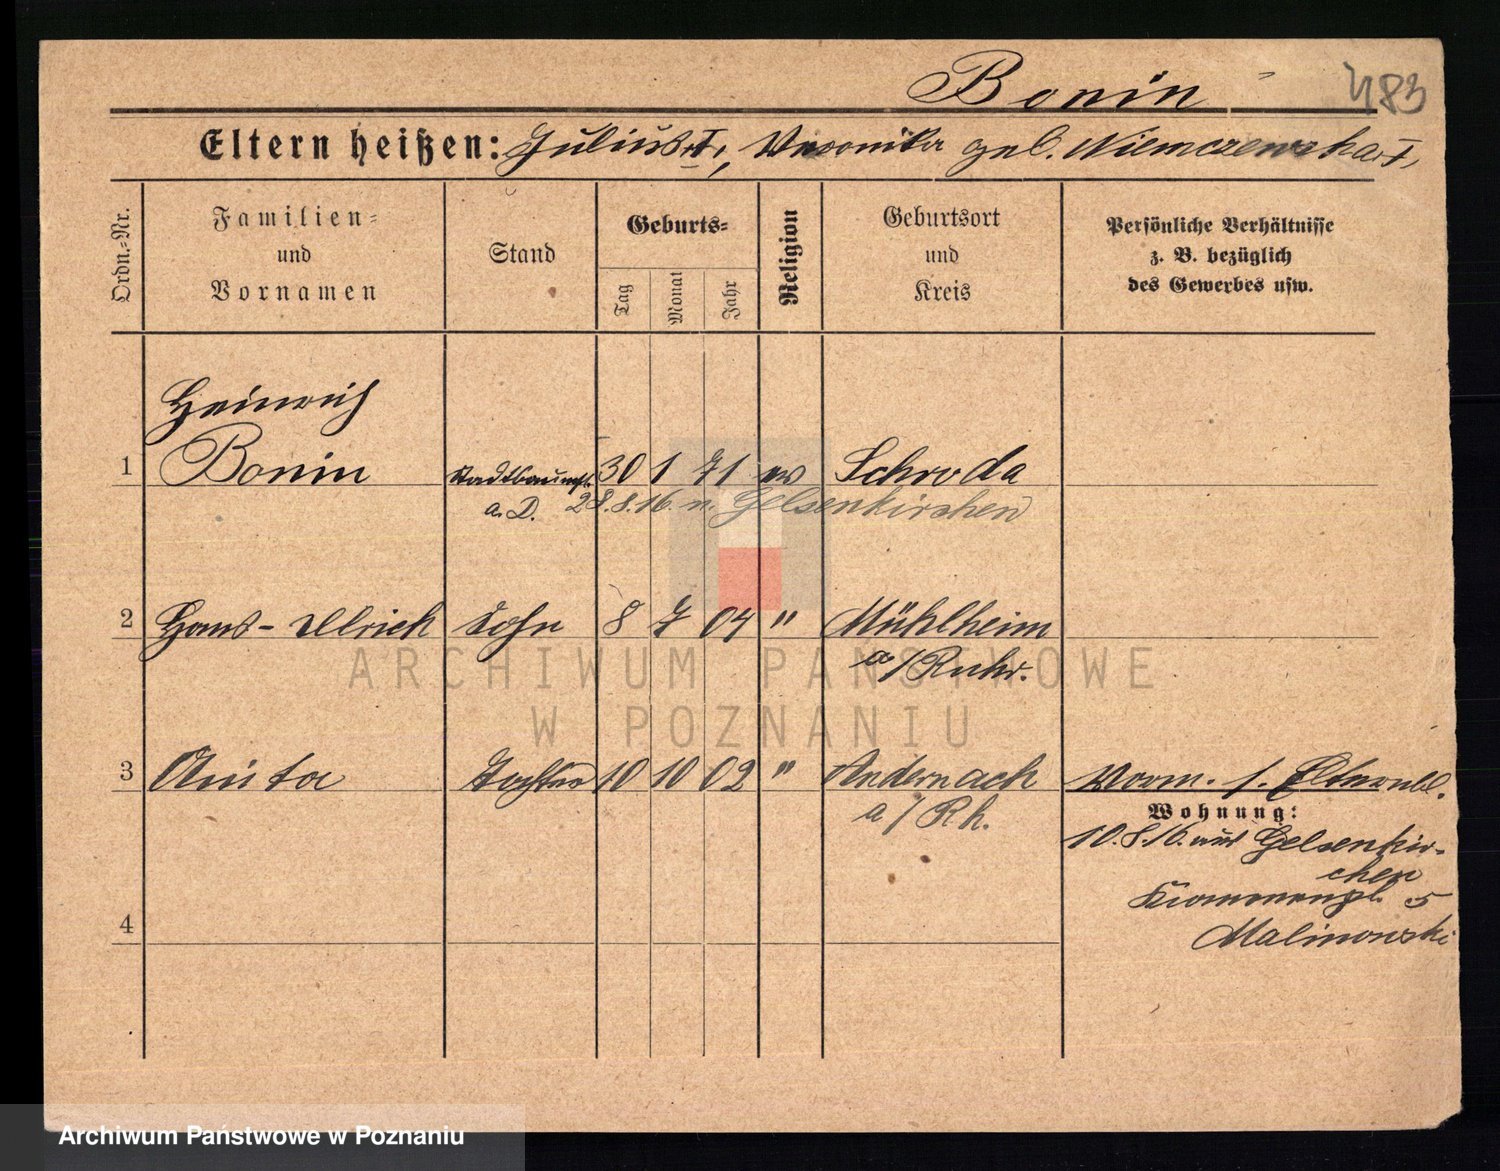 Bonin 483
Eltern heißen: Julius †, Veronika geb. Niemczewska †,
Ordn.-Nr.
Familien-
und
Vornamen
Stand
Geburts-
Tag
Monat
Jahr
Religion
Geburtsort
und
Kreis
Persönliche Verhältnisse
z. B. bezüglich
des Gewerbes usw.
Heinrich
1 Bonin Stadtbaumstr. 30 1 71 ev Schroda
a. D. 28.8.16. n. Gelsenkirchen
2 Hans-Ullrich Sohn 8 7 04 " Mühlheim
a/Ruhr.
ARCHIWUM PAŃSTWOWE
W POZNANIU
3 Anita Tochter 10 10 02 " Andernach Vorm. s.
a/Rh.
Wohnung:
10.8.16. aus Gelsenkir-
chen
5
4
Malinowski
Archiwum Państwowe w Poznaniu